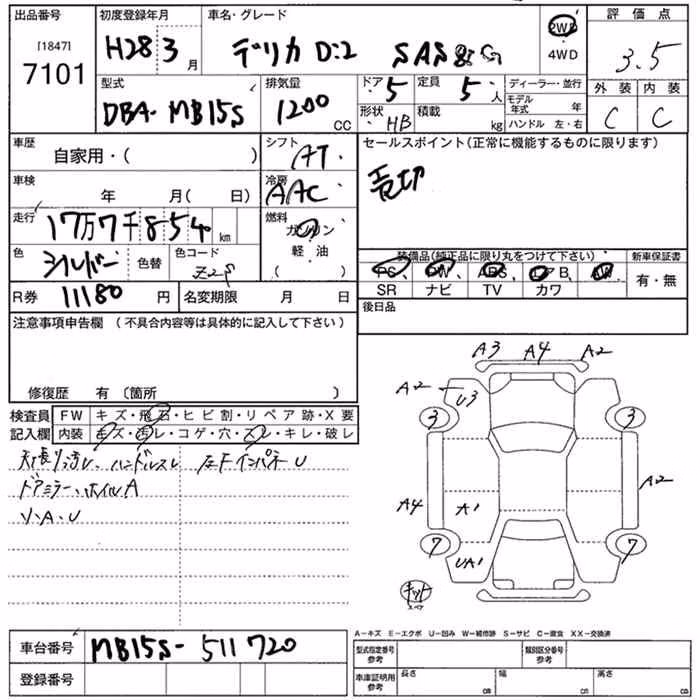 出品番号 初度登録年月 車名・グレード 評価点
[1847]
7101 H28 3月 デリカ D:2 SAS G 2WD 3.5
4WD
型式 排気量 ドア 5 定員 5人 ディーラー・並行 外装 内装
DBA-MB15S 1200CC 形状 HB 積載 kg モデル年式 年 C C
ハンドル 左・右
車歴 自家用・( ) シフト AT セールスポイント(正常に機能するものに限ります)
車検 年 月( 日) 冷房 AAC 売切
走行 17万7千854km 燃料 ガソリン
軽・油
( )
色 シルバー 色替 色コード Z2S 装備品(純正品に限り丸をつけて下さい) 新車保証書
PS PW ABS エアB AW 有・無
R券 11180円 名変期限 月 日 SR ナビ TV カワ
注意事項申告欄 (不具合内容等は具体的に記入して下さい) 後日品
修復歴 有〔箇所 〕
検査員 FW キズ・飛石・ヒビ割・リペア跡・X要
記入欄 内装 キズ・汚レ・コゲ・穴・スレ・キレ・破レ
天張り汚レ、ハンドルスレ 左FインパネU
ドアミラー、ホイルA
リ、A、U
A3 A4 A2
A2 U3
3 3
A4 A1 A2
7 UA1 7
キット
A-キズ E-エクボ U-凹み W-補修跡 S-サビ C-腐食 XX-交換済
車台番号 MB15S-511720 型式指定番号 参考 類別区分番号 参考
登録番号 車庫証明用 参考 長さ cm 幅 cm 高さ cm